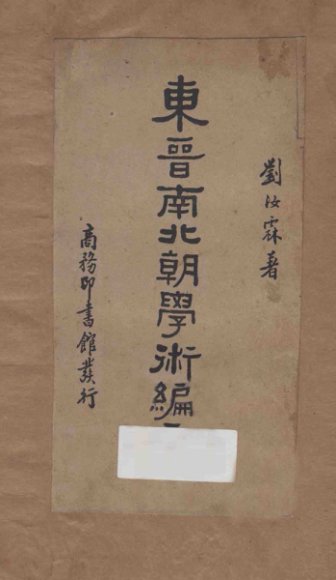 劉汝霖著
東晉南北朝學術編
商務印書館發行